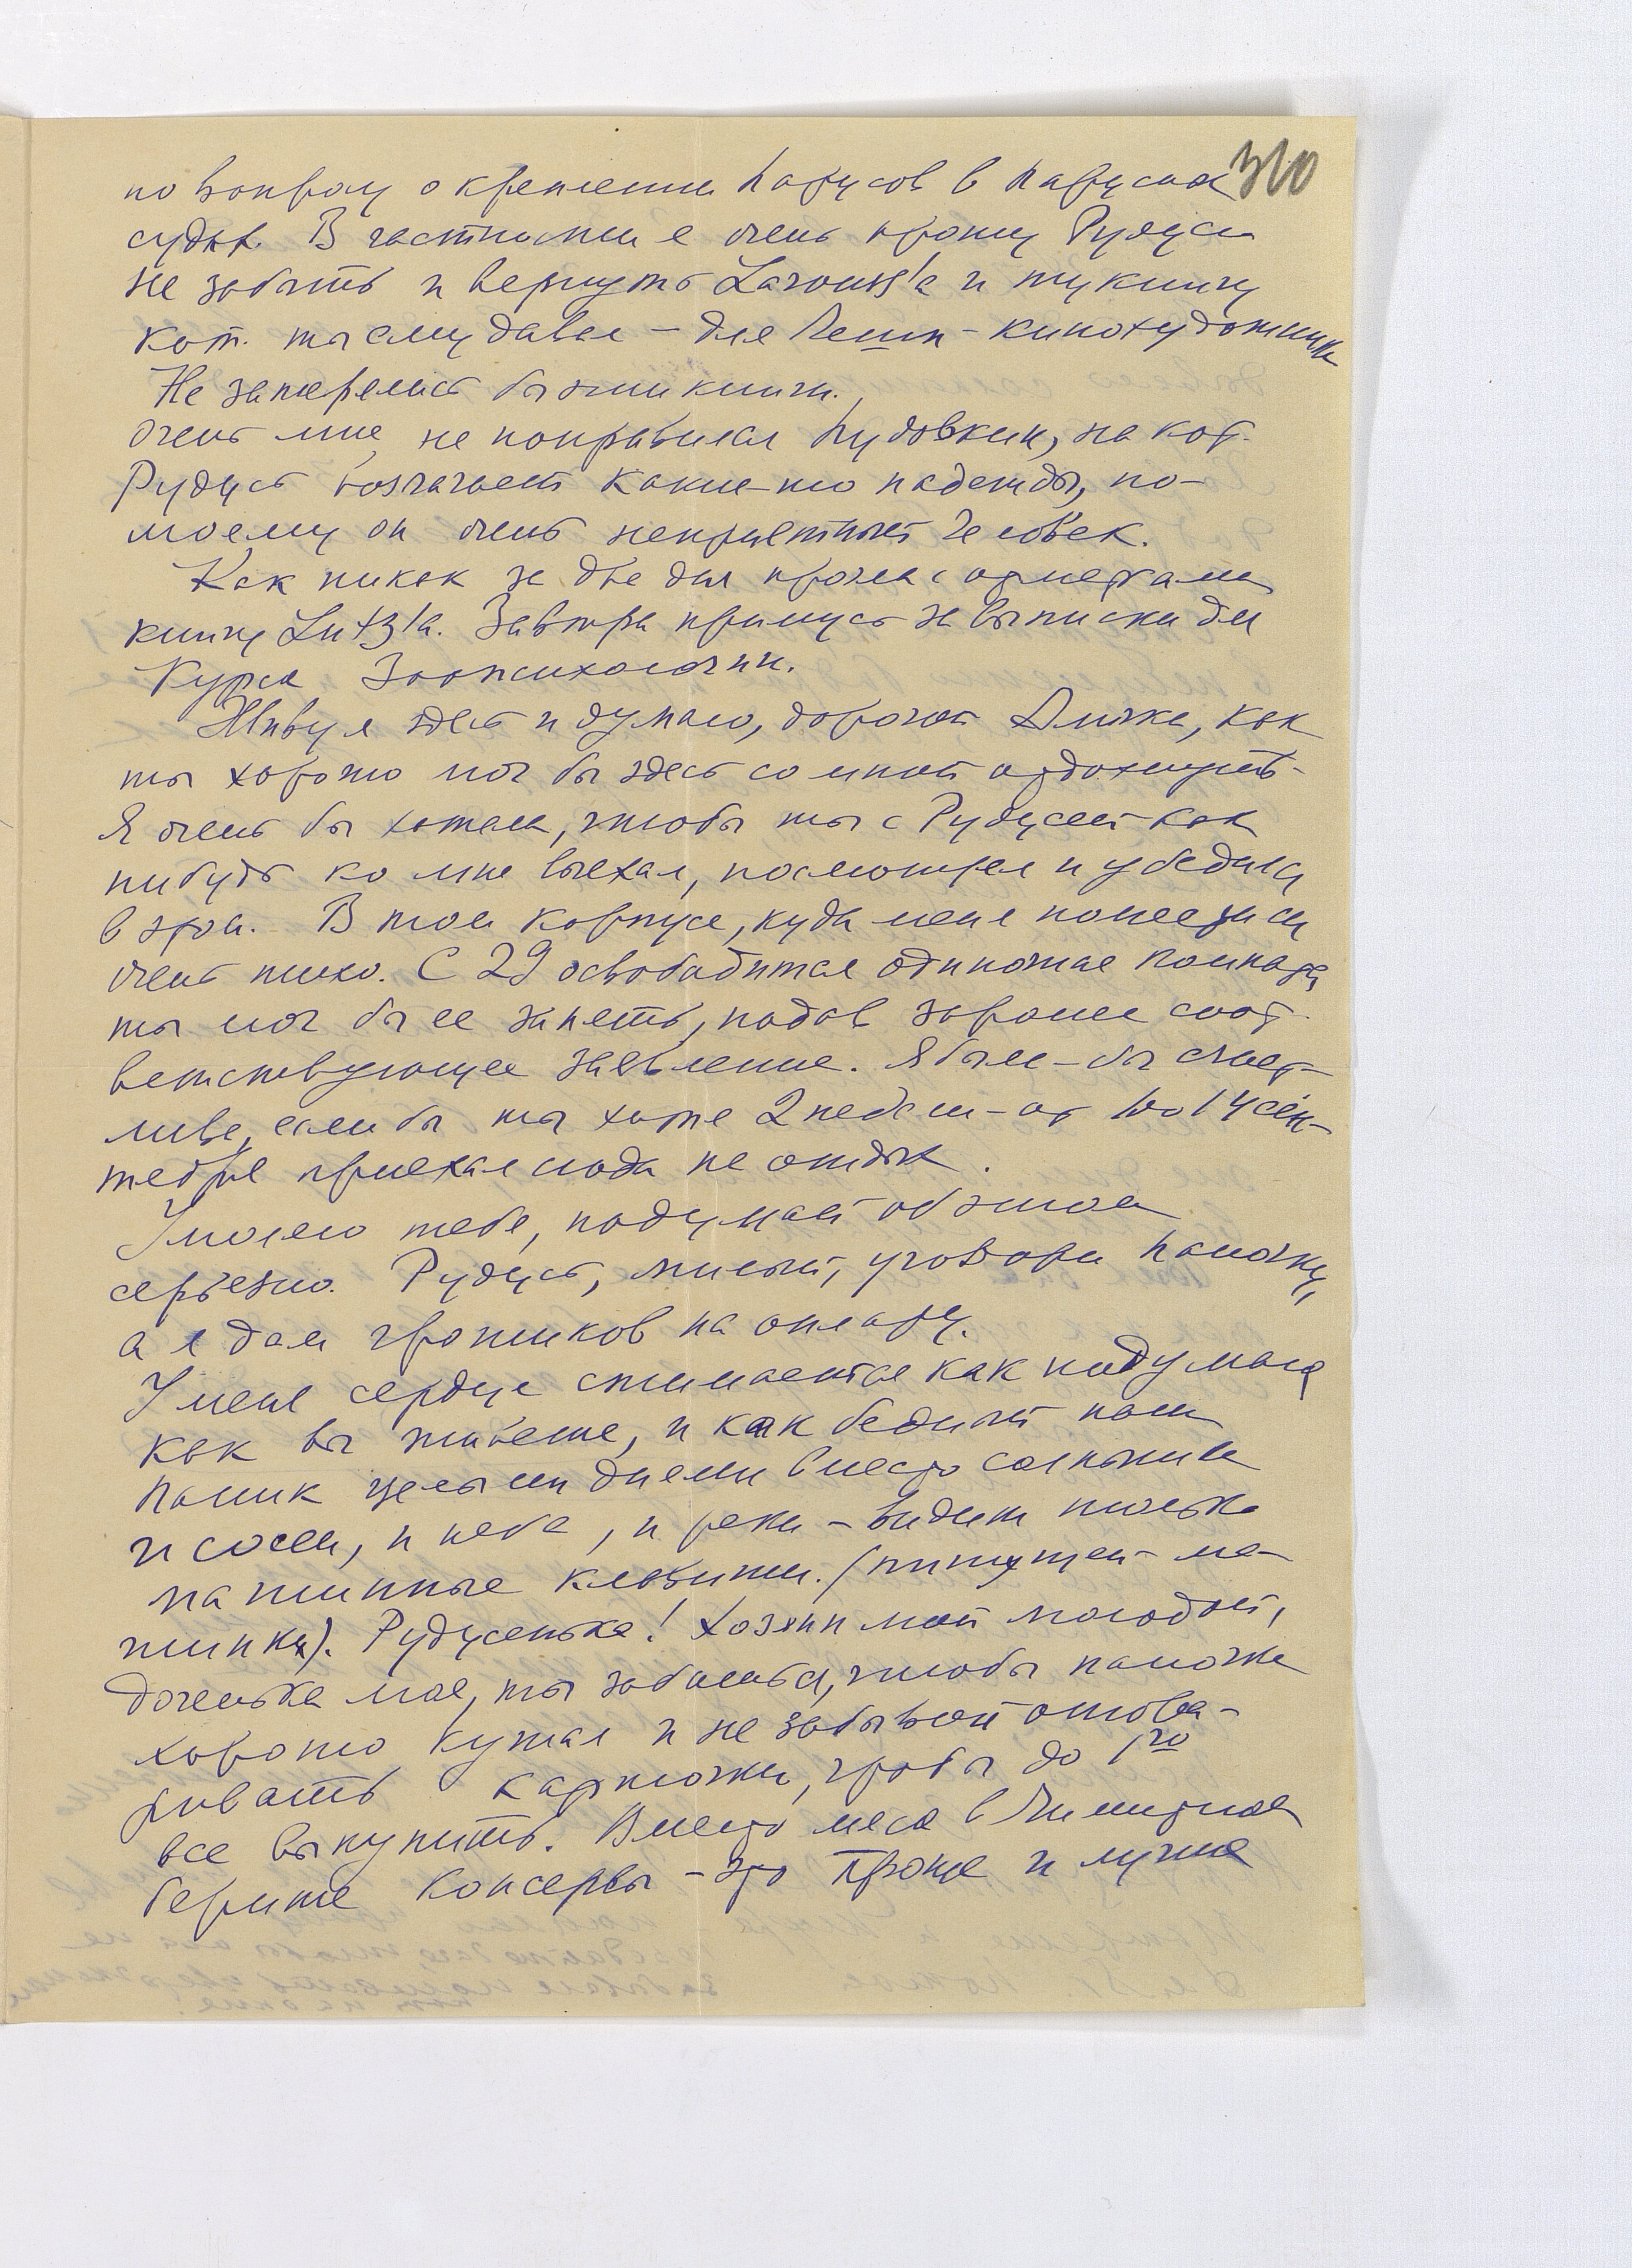 310
по вопросу о креплении парусов в парусных
судах. В частности я очень прошу Рудуся
не забыть и вернуть Larouss'a и ту книгу
кот. ты ему давал – для Пети – кинохудожника
Не затерялись бы эти книги.
Очень мне не понравился Пудовкин, на кот.
Рудусь возлагает какие-то надежды, по-
моему он очень неприятный человек.
Как никак за два дня прочла с отметками
книгу Lutz'a. Завтра примусь за выписки для
Курса Зоопсихологии.
Живу я здесь и думаю, дорогой как
ты хорошо мог бы здесь со мной отдохнуть.
Я очень бы хотела, чтобы ты с Рудусей как
нибудь ко мне выехал, посмотрел и убедился
в этом. В том корпусе, куда меня поместили
очень тихо. С 29 освободится одиночная комната,
ты мог бы ее занять, подав заранее соот-
ветствующее заявление. Я была-бы счаст-
лива, если бы ты хотя 2 недели – от 1 до 14 сен-
тября приехал сюда на отдых.
Умоляю тебя, подумай об этом
серьезно. Рудусь, милый, уговори папочку,
а я дам грошиков на оплату.
У меня сердце сжимается как подумаю
как вы живете, и как бедный наш
папик целыми днями вместо солнышка
и сосен, и неба, и реки – видит только
машинные клавиши. (пишущей ма-
шинки). Рудусенька! Хозяин мой молодой,
доченька моя, ты заботься, чтобы папочка
хорошо кушал и не забывай отова-
ривать карточки, чтобы до 1го
все выкупить. Вместо мяса в
берите консервы – это проще и лучше